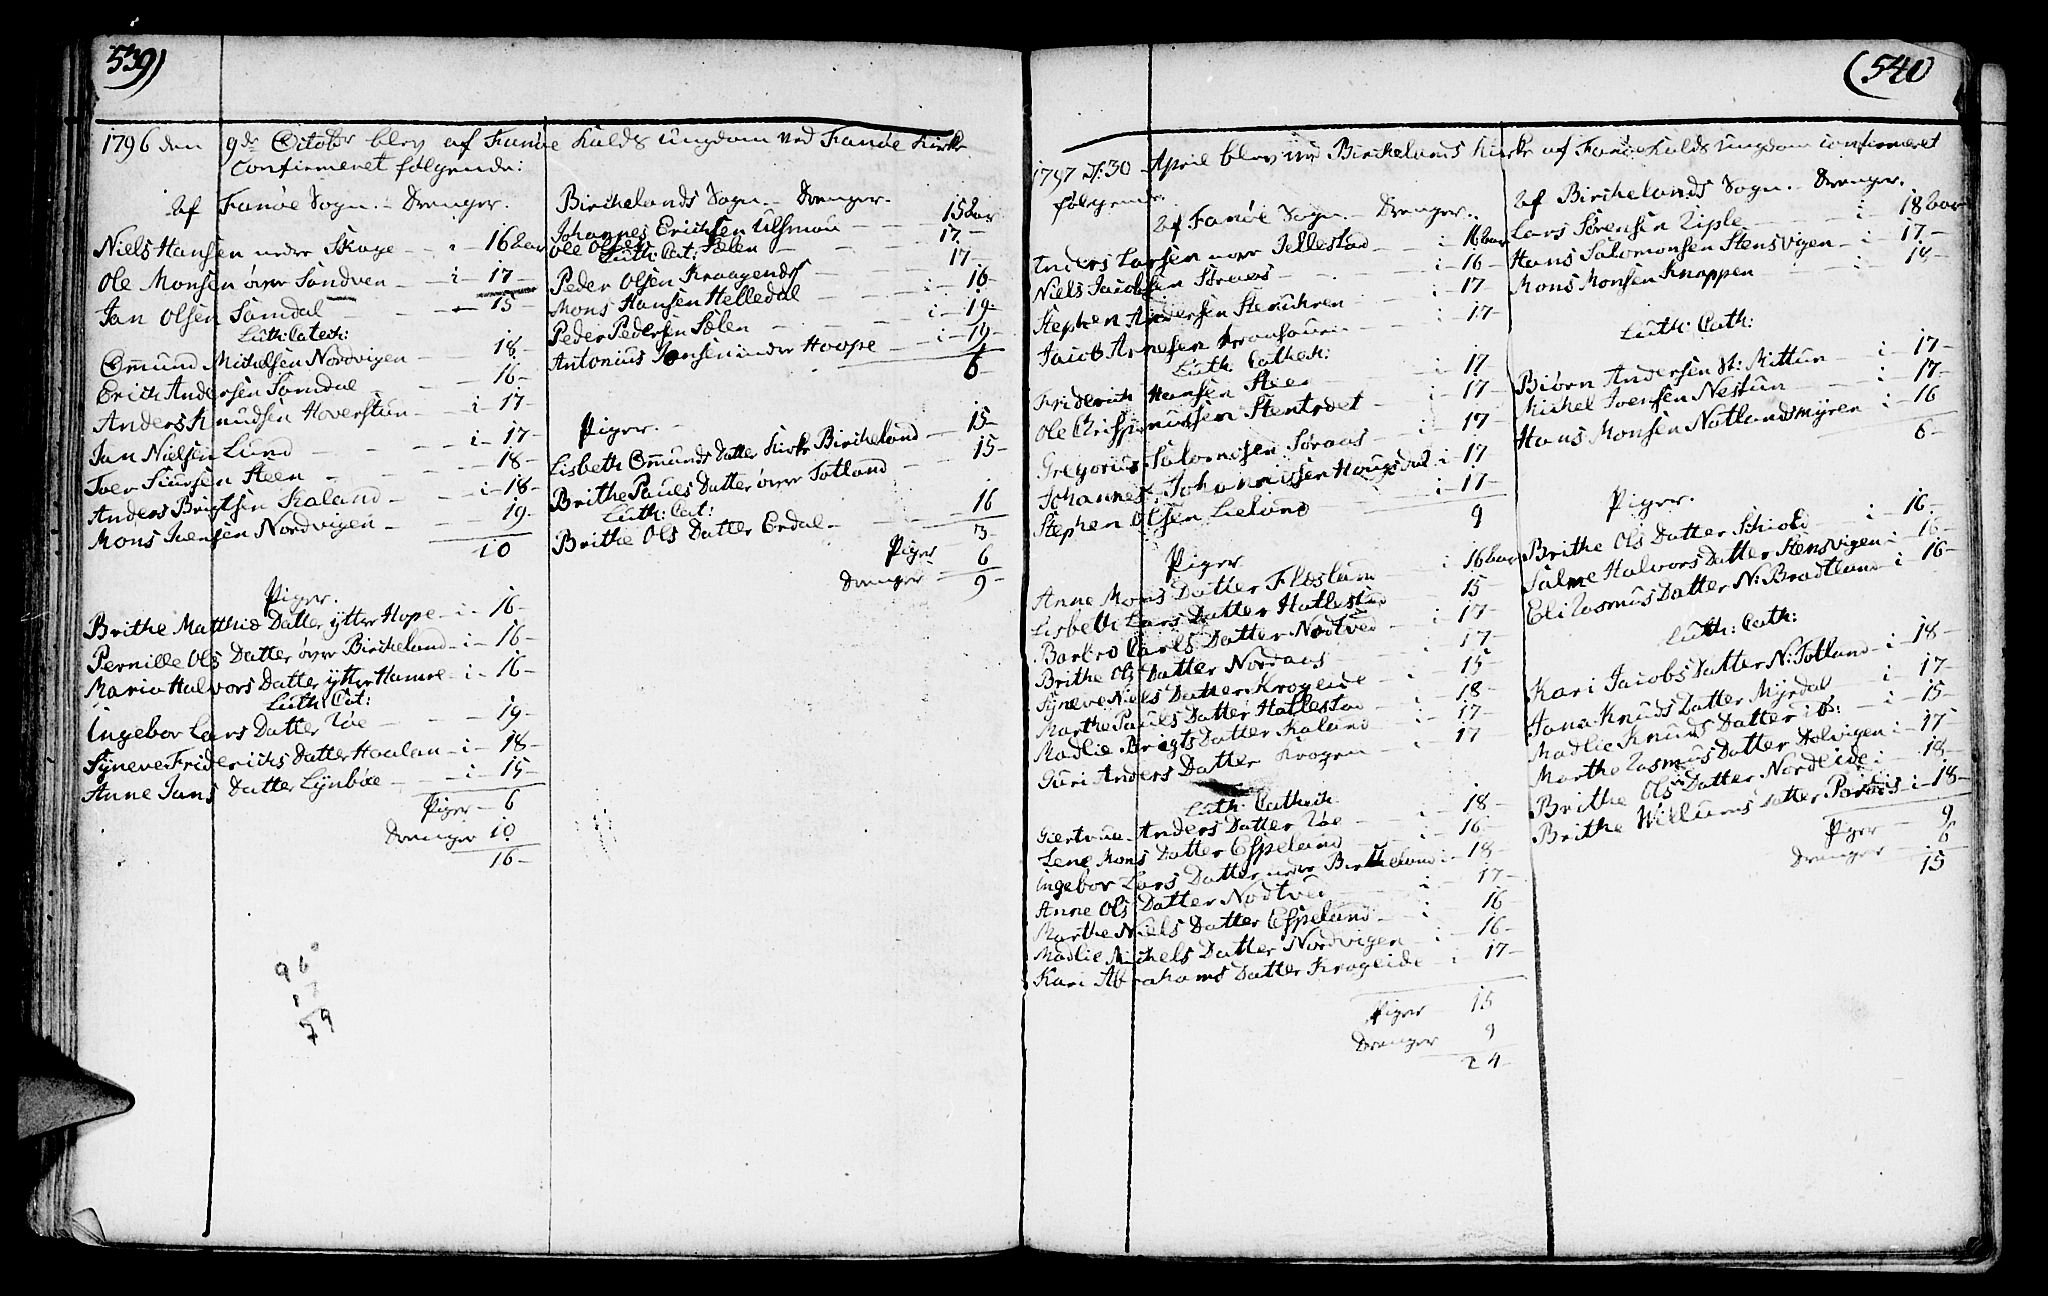 539)
1796 den 9de Octobr blev af Fanöe Kalds ungdom ved Fanöe Kirke
Confirmeret følgende:
Af Fanöe Sogn. Drenger.
Niels Hansen nedre Skage - i - 16 Aar
Ole Monsen øvre Sandven - i - 17 -
Jan Olsen Samdal - 15 -
Luth: Catech:
Omund Michelsen Nordvigen - 18 -
Erich Andersen Samdal - 16 -
Anders Knudsen Hoverstun - i - 17 -
Jan Nielsen Lund - i - 17 -
Iver Siursen Steen - 18 -
Anders Brigtsen Kaland - i - 18 -
Mons Iversen Nordvigen - 19 -
10
Piger.
Brithe Matthis Datter ytter Hope - i - 16 -
Pernille Ols Datter øvre Bircheland - i - 16 -
Maria Halvors Datter ytter Hamre - i - 16 -
Luth: Cat:
Ingebor Lars Datter Röe - 19 -
Syneve Friderichs Datter Haaland - i - 18 -
Anne Jans Datter Lynböe - i - 15 -
Piger - 6
Drenger 10
16 -
96
17
79
Birchelands Sogn. Drenger.
Johannes Erichsen Ulsmøe - 15 Aar
Ole Olsen Sælen - 17 -
Luth: Cat:
Peder Olsen Kraagenes - 17 -
Mons Hansen Helledal - i - 16 -
Peder Pedersen Sælen - i - 19 -
Antonius Jensen indre Hoope - i - 19 -
6 -
Piger.
Lisbeth Omunds Datter Kirke Bircheland - 15 -
Brithe Pauls Datter øvre Totland - 15 -
Luth: Cat:
Brithe Ols Datter Erdal - 16
3 -
Piger
Drenger - 6
9 -
(540
1797 d: 30 April blev ved Birchelands Kirke af Fanöe Kalds ungdom confirmeret
følgende.
Af Fanöe Sogn. Drenger.
Anders Larsen nedre Tellestad - i - 16 Aar
Niels Jacobsen Søraas - i - 16 -
Stephen Andersen Stenuhren - i - 17 -
Jacob Arnesen - i - 17 -
Luth: Cathek:
Friderich Hansen Steen - i - 17
Ole Chrispinusen Stenrødet - i - 17 -
Gregorius Salomonsen Søraas - i - 17
Johannes Johannissen Hougsdal i - 17
Stephen Olsen Lielund - i - 17 -
9
Piger
Anne Mons Datter Fleslund - i - 16 Aar
Lisbeth Lars Datter Hatlestad - 15
Barbro Carls Datter Nødtved - i - 17
Brithe Ols Datter Nordaas - i - 17 -
Syneve Niels Datter Krogeide - i - 15
Marthe Pauls Datter Hatlestad - i - 18 -
Madlie Brigts Datter Kaland - i - 17 -
Guri Anders Datter Krogen - i - 17
Luth: Cathek:
Giertrue Anders Datter Röe - i - 18 -
Lene Mons Datter Espeland - i - 16 -
Ingebor Lars Datter nedre Bircheland i - 18 -
Anne Ols Datter Nødtved - i - 17 -
Marthe Niels Datter Espeland - i - 16
Madlie Michels Datter Nordvigen - i - 16 -
Kari Abrahams Datter Krogeide - i - 17 -
Piger - 15
Drenger 9
24 -
Af Birchelands Sogn. Drenger.
Lars Sørensen Riple - i - 18 Aar
Hans Salomonsen Stensvigen - i - 17 -
Mons Monsen Knappen - i - 18 -
Luth: Cath:
Biørn Andersen St: Mittun - i - 17 -
Michel Iversen Nestun - i - 17 -
Hans Monsen Natlandsmyren i - 16
6 -
Piger.
Brithe Ols Datter Schiold - i - 16 -
Salme Halvors Datter Stensvigen - i - 16 -
Eli Rasmus Datter N: Bradtland - i - 16 -
Luth: Cath:
Kari Jacobs Datter N: Totland - i - 18 -
Jana Knuds Datter Myrdal - i - 17 -
Madlie Knuds Datter ib: - i - 15 -
Marthe Rasmus Datter Dolvigen i - 17 -
Brithe Ols Datter Nordeide i - 18 -
Brithe Willums datter - i - 18 -
Piger - 9
Drenger 6
15